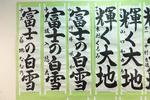 輝く大地
輝く大地
富士の白雪
富士の白雪
富士の白雪